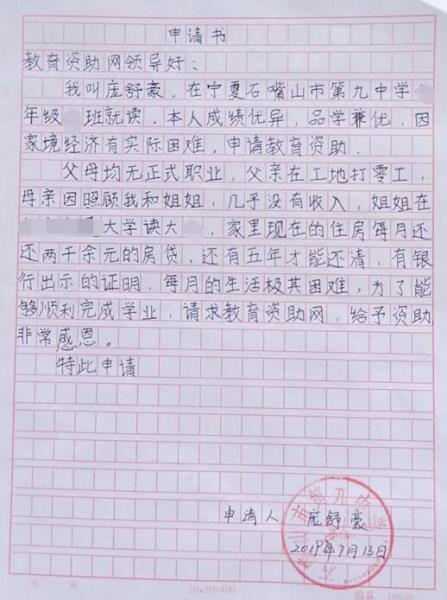 申请书
教育资助网领导好：
我叫庞舒豪，在宁夏石嘴山市第九中学
年级 班就读，本人成绩优异，品学兼优，因
家境经济有实际困难，申请教育资助．
父母均无正式职业，父亲在工地打零工，
母亲因照顾我和姐姐，几乎没有收入，姐姐在
大学读大 ，家里现在的住房每月还
还两千余元的房贷，还有五年才能还清，有银
行出示的证明，每月的生活极其困难，为了能
够顺利完成学业，请求教育资助网，给予资助
非常感恩。
特此申请
申请人 庞舒豪
2019年9月13日
20×20=400